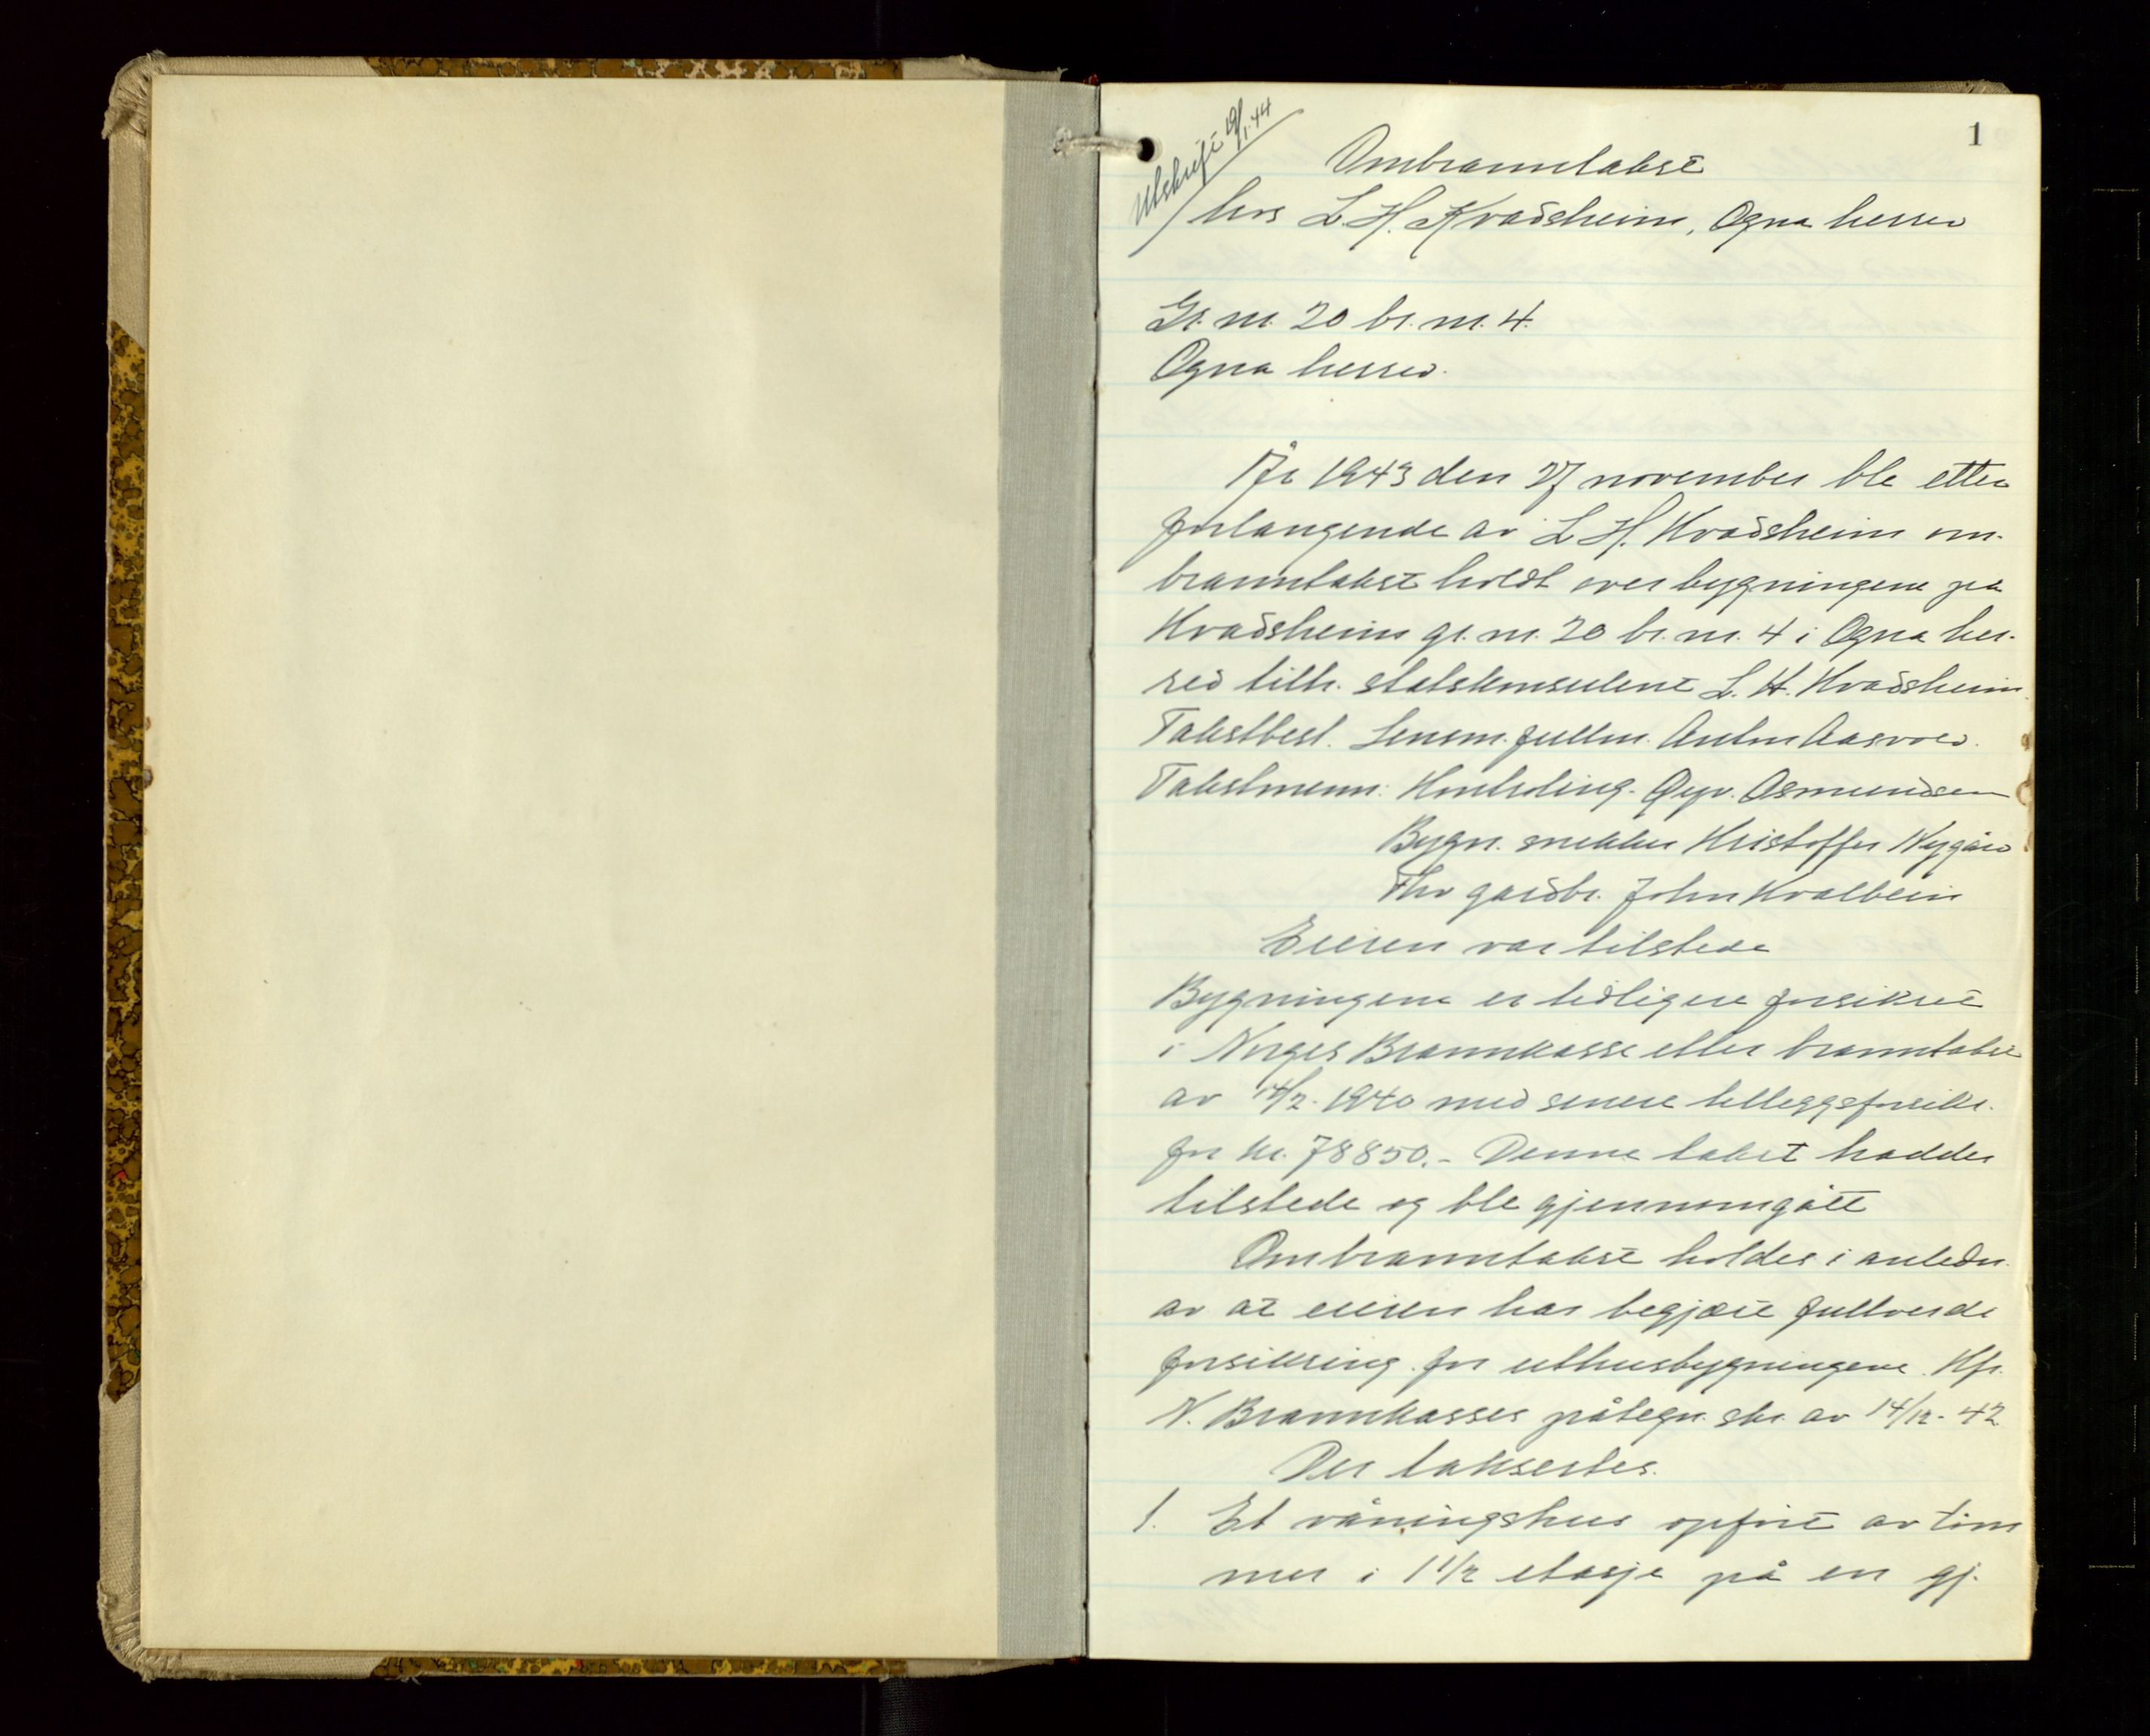 1
Utskrift 19/1.44
Ombranntakst
hos L. H. Kvadsheim, Ogna herred
Gr. nr. 20 br. nr. 4.
Ogna herred.
År 1943 den 27 november ble etter
forlangende av L H. Kvadsheim om-
branntakst holdt over bygningene på
Kvadsheim gr. nr. 20 br. nr. 4 i Ogna her-
red tilh. statskonsulent L. H. Kvadsheim.
Takstbest. Lensm. fullm. Anton Aasvold.
Takstmenn: Kontroling. Osmundsen
Bygn. snekker Kristoffer Nygård
gardbr. John Kvalbein
Eieren var tilstede
Bygningene er tidligere forsikret
i Norges Brannkasse etter branntakst
av 14/2. 1940 med senere tilleggsforsikr.
for kr. 78850.- Denne takst haddes
tilstede og ble gjennomgått
Ombranntakst holdes i anledn.
av at eieren har begjært fullverdi
forsikring for uthusbygningene. Kfr.
N. Brannkasses påtegn. skr. av 14/12- 42
Der taksertes.
1. Et våningshus opført av tøm
mer i 1 1/2 etasje på en gj.